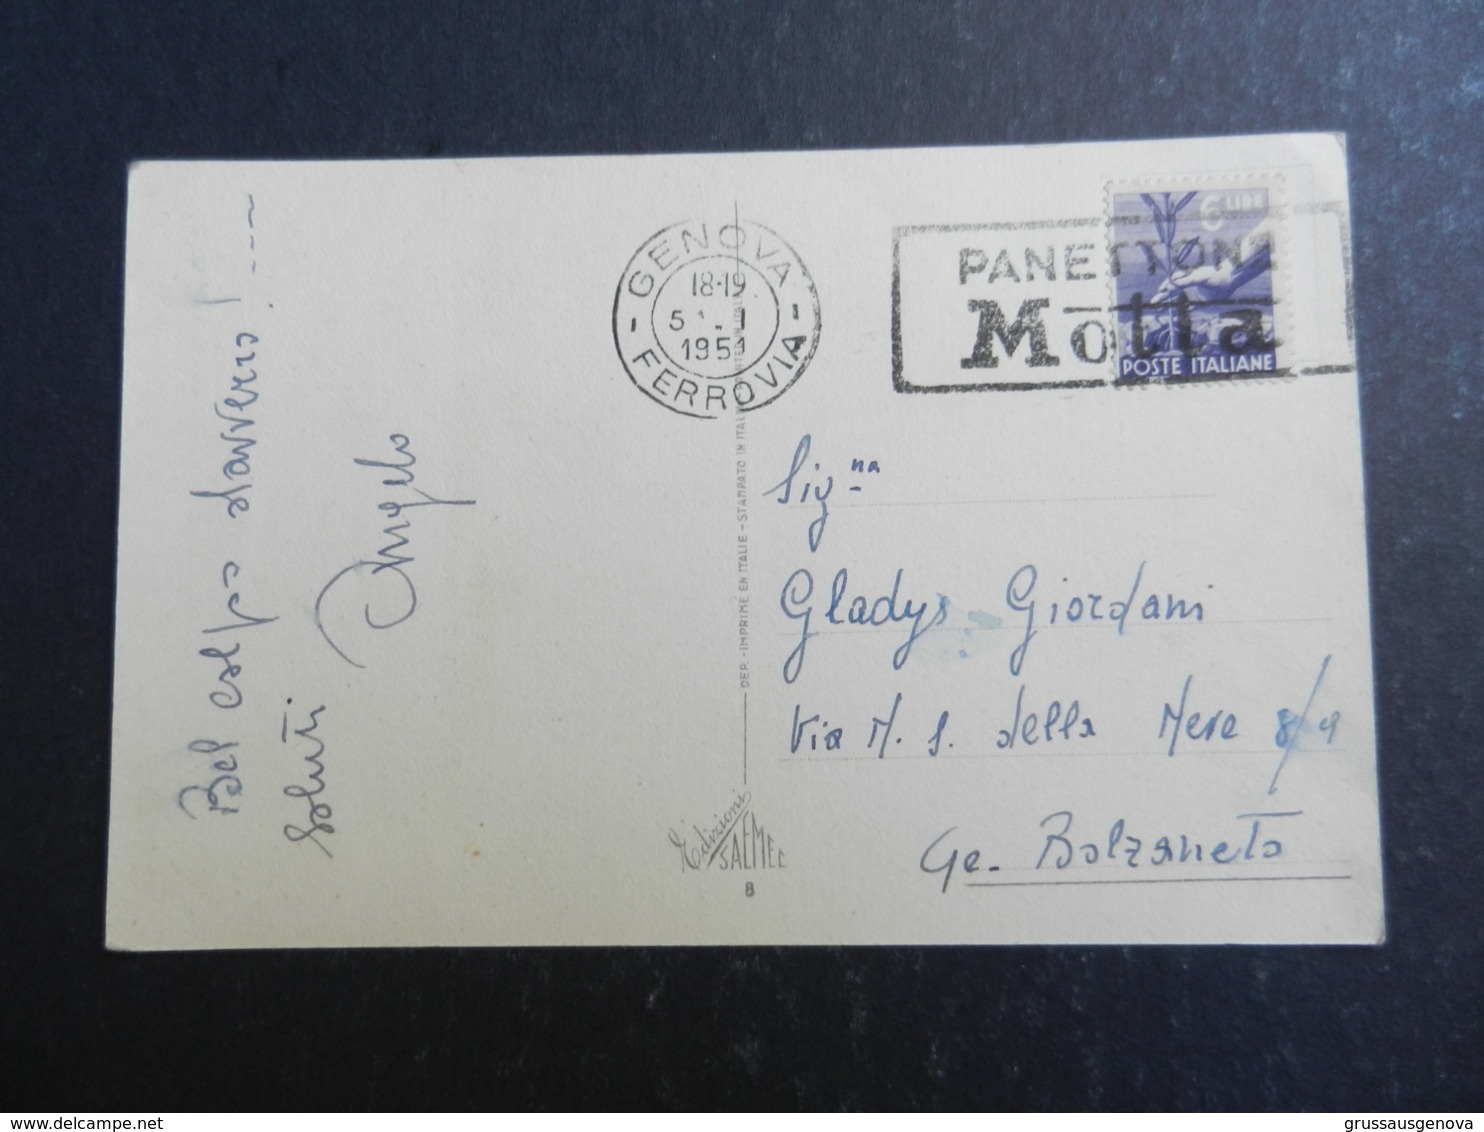 Bel colpo davvero! ---
Saluti
Angelo
GENOVA
18-19
1951
- FERROVIA -
PANETTONE
Motta
6 LIRE
POSTE ITALIANE
DEP. - IMPRIMÉ EN ITALIE - STAMPATO IN ITALIA - PRINTED IN ITALY
Edizioni
SAEMEC
8
Sig.na
Gladys Giordani
Via N. S. della Neve 8/9
Ge. Bolzaneto
www.delcampe.net
grussausgenova